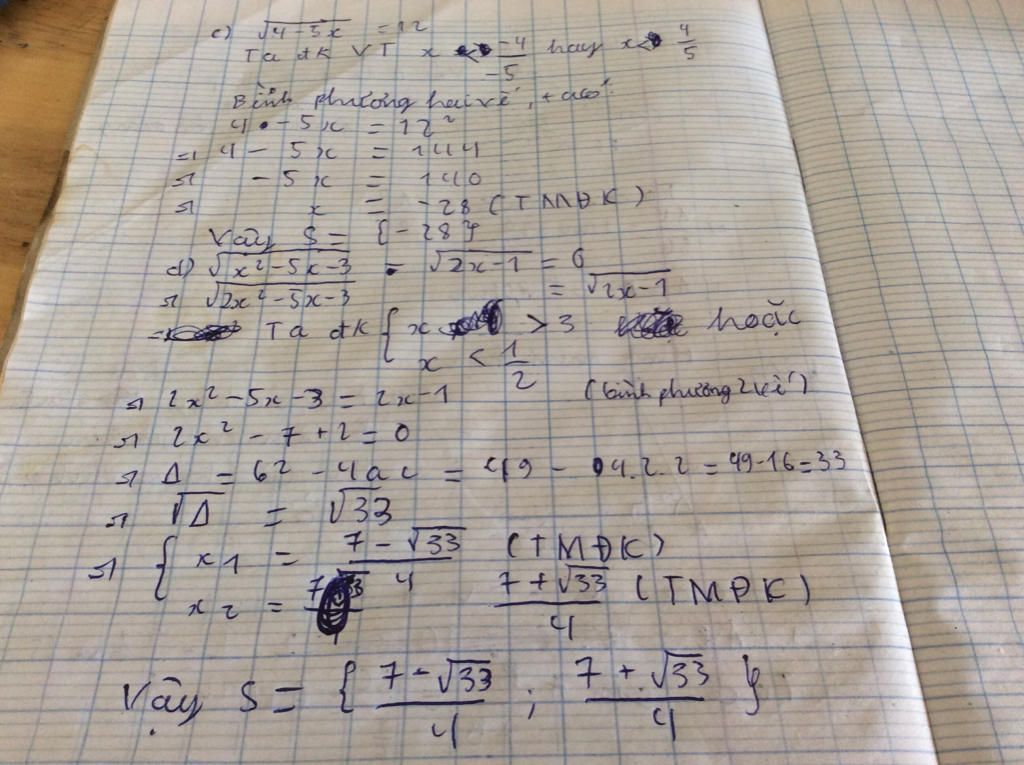 c) √4-5x = 12
Ta đk VT x < -4/-5 hay x < 4/5
Bình phương hai vế, ta có:
4 - 5x = 12²
=> 4 - 5x = 144
=> - 5x = 140
=> x = -28 (TMĐK)
Vậy S = {-28}
d) √x²-5x-3 - √2x-1 = 0
=> √2x²-5x-3 = √2x-1
Ta đk { x > 3 hoặc
x < 1/2
=> 2x²-5x-3 = 2x-1 (bình phương 2 vế)
=> 2x² - 7 + 2 = 0
=> Δ = b² - 4ac = 49 - 4.2.2 = 49-16=33
=> √Δ = √33
=> { x1 = 7-√33/4 (TMĐK)
x2 = 7+√33/4 (TMĐK)
Vậy S = { 7-√33/4 ; 7+√33/4 }